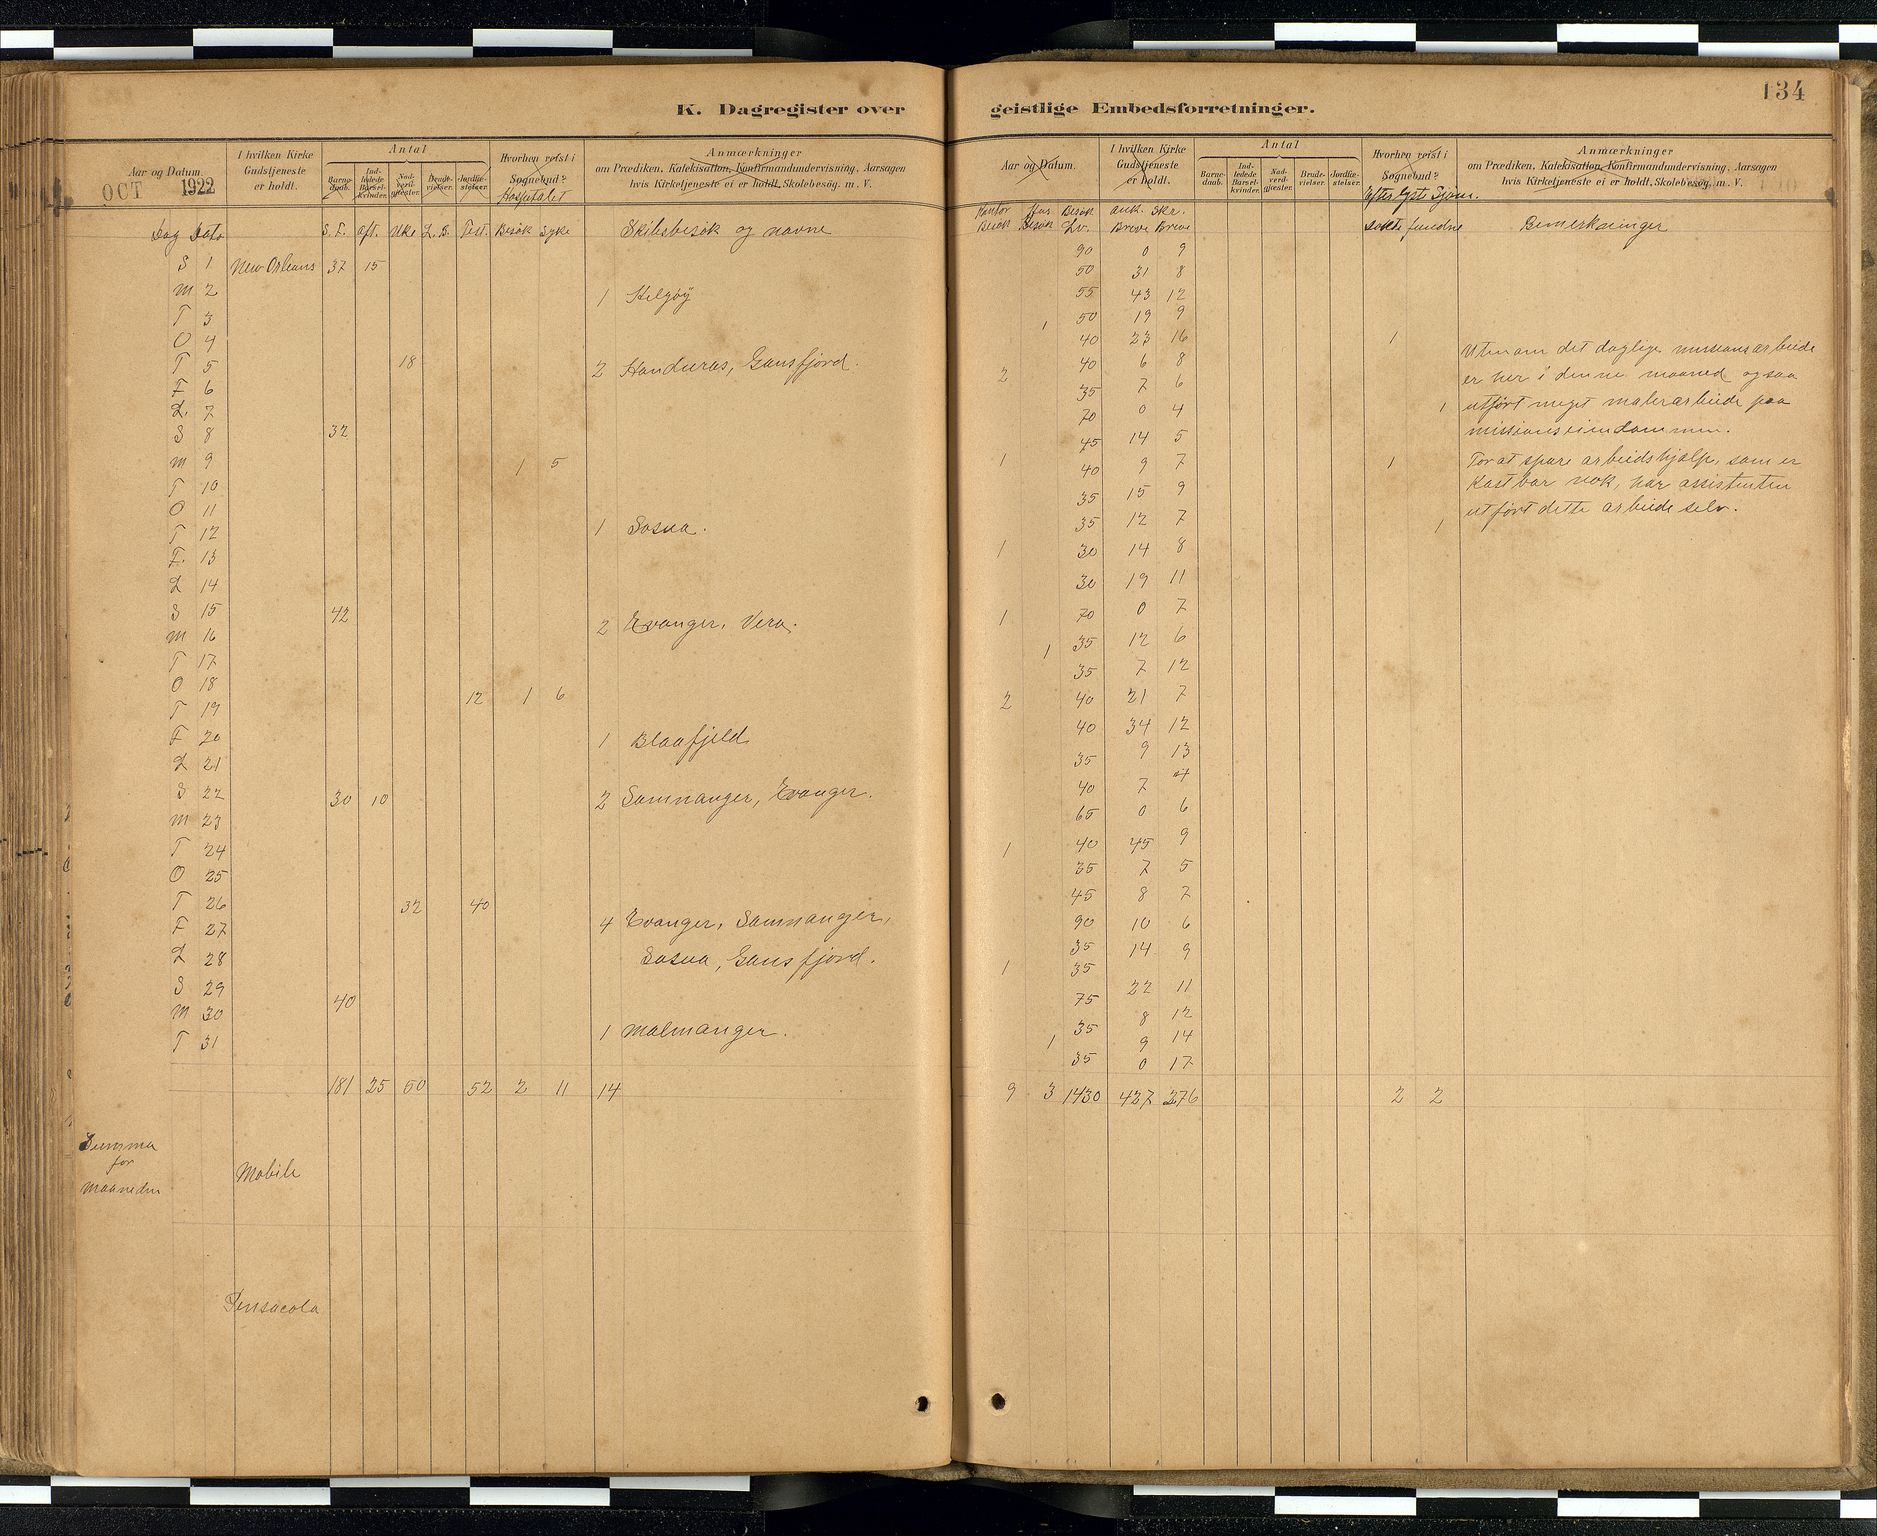 134
K. Dagregister over geistlige Embedsforretninger.
Aar og Datum.
I hvilken Kirke Gudstjeneste er holdt.
Antal
Barnedaab.
Indledede Barselkvinder.
Nadverdgjester.
Brudevielser.
Jordfæstelser.
Hvorhen reist i Sognebud?
Anmærkninger
om Prædiken, Katekisation, Konfirmandundervisning, Aarsagen
hvis Kirketjeneste ei er holdt, Skolebesøg. m. V.
OCT 1922
Hospitalet
Dag Dato S. F. Aft. Uke L. B. Fest. Besøk Syke Skibsbesøk og navne
S 1 New Orleans 37 15
M 2 1 Helgøy
T 3
O 4
T 5 18 2 Honduras, Gansfjord.
F 6
L. 7
S 8 32
M 9 1 5
T 10
O 11
T 12 1 Sosua.
F. 13
L 14
S 15 42
M 16 2 Evanger, Vera.
T 17
O 18 12 1 6
T 19
F 20 1 Blaafjeld
L 21
S 22 30 10 2 Samnanger, Evanger.
M 23
T 24
O 25
T 26 32 40
F 27 4 Evanger, Samnanger,
L 28 Sosua, Gansfjord.
S 29
M 30 40
T 31 1 Malmanger.
181 25 50 52 2 11 14
Summa
for
Maaneden
Mobile
Pensacola
Aar og Datum.
I hvilken Kirke Gudstjeneste er holdt.
Antal
Barnedaab.
Indledede Barselkvinder.
Nadverdgjester.
Brudevielser.
Jordfæstelser.
Hvorhen reist i Sognebud?
Anmærkninger
om Prædiken, Katekisation, Konfirmandundervisning, Aarsagen
hvis Kirketjeneste ei er holdt, Skolebesøg. m. V.
Kontor Hus Besøk ank. Skr.
Besøk Besøk Lv. Breve Breve
søkte fundne Bemerkninger
90 0 9
50 31 8
55 43 12
1 50 19 9
40 23 16 1
40 6 8
2 35 7 6
70 0 4 1
45 14 5
1 40 9 7 1
35 15 9
35 12 7 1
1 30 14 8
30 19 11
1 70 0 7
1 35 12 6
35 7 12
2 40 21 7
40 34 12
35 9 13
40 7 4
65 0 6
1 40 45 9
35 7 5
45 8 7
90 10 6
35 14 9
1 35 22 11
75 8 12
1 35 9 14
35 0 17
9 3 1430 427 276 2 2
Utenom det daglige missionsarbeide
er her i denne maaned ogsaa
utført meget malerarbeide paa
missionseiendommen.
For at spare arbeidshjælp, som er
kostbar nok, har assistenten
utført dette arbeide selv.